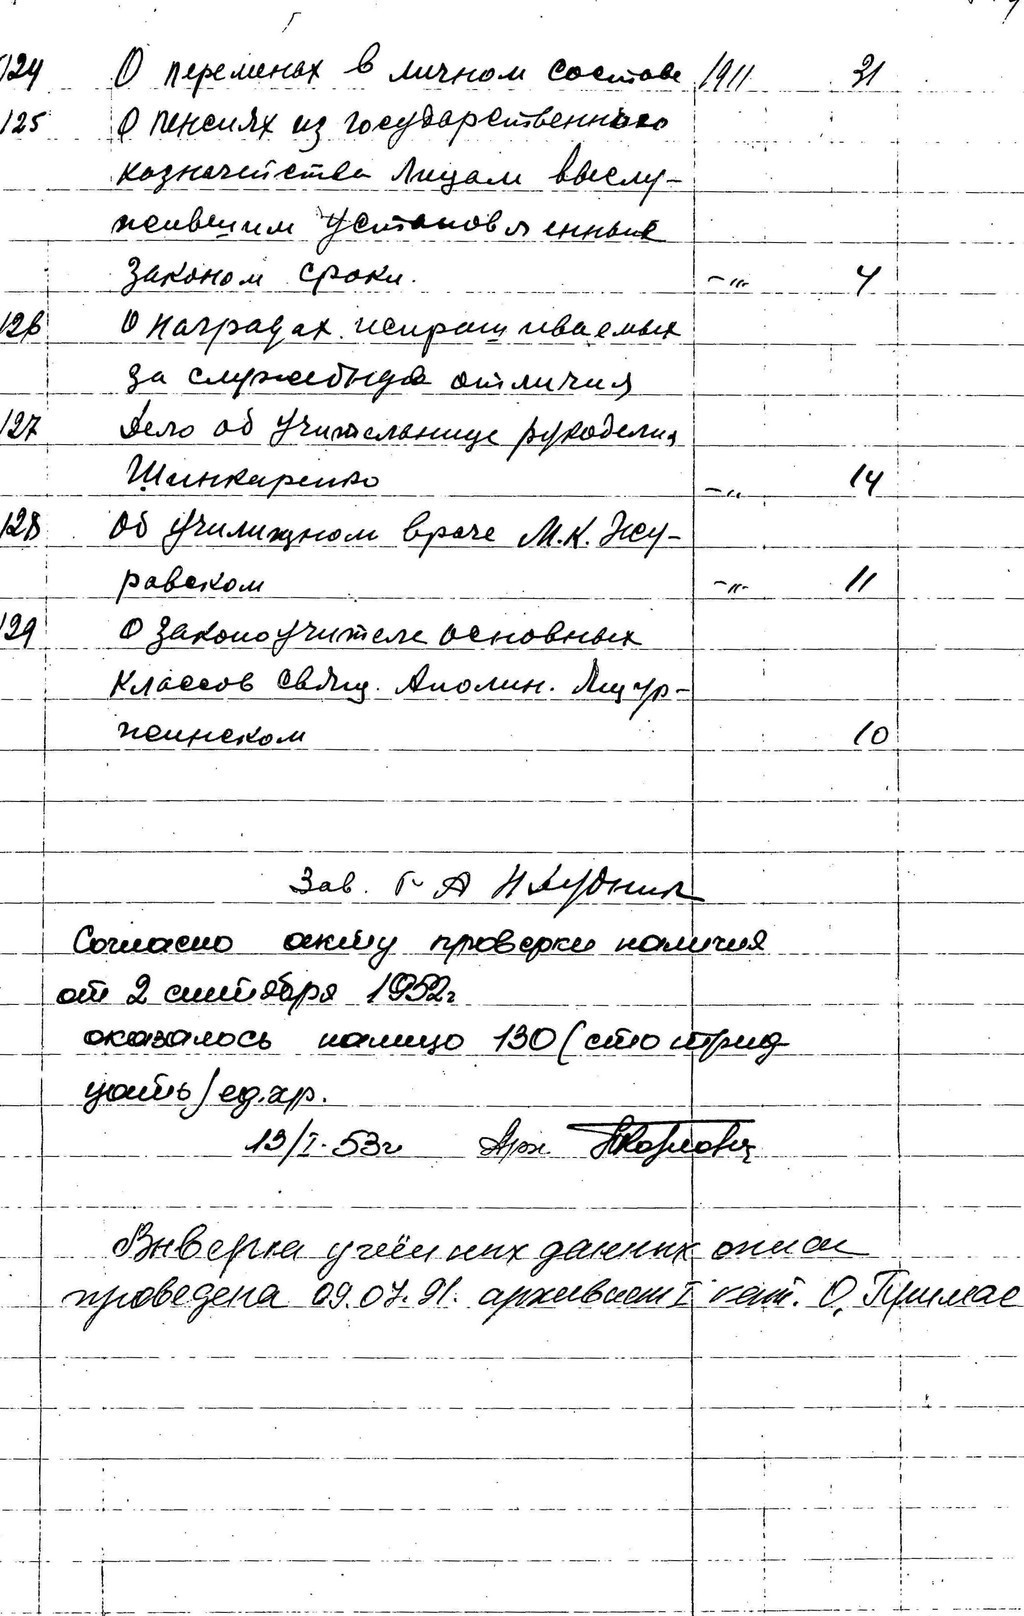 124 О переменах в личном составе 1911 31
125 О пенсиях из государственного
казначейства лицам выслу-
жившим установленные
законом сроки. -"- 4
126 О наградах испрашиваемых
за служебные отличия
127 Дело об учительнице рукоделия
Шинкаренко -"- 14
128 Об училищном враче М.К. Жу-
равском -"- 11
129 О законоучителе основных
классов свящ. Аполин. Мщур-
жинском 10
Зав. Г А
Согласно акту проверки наличия
от 2 сентября 1952г
оказалось налицо 130 (сто трид
цать) ед.хр.
13/I-53г Арх.
Вивірка учётних данных описи
проведена 09.07.91. архивист I кат. О. Примас